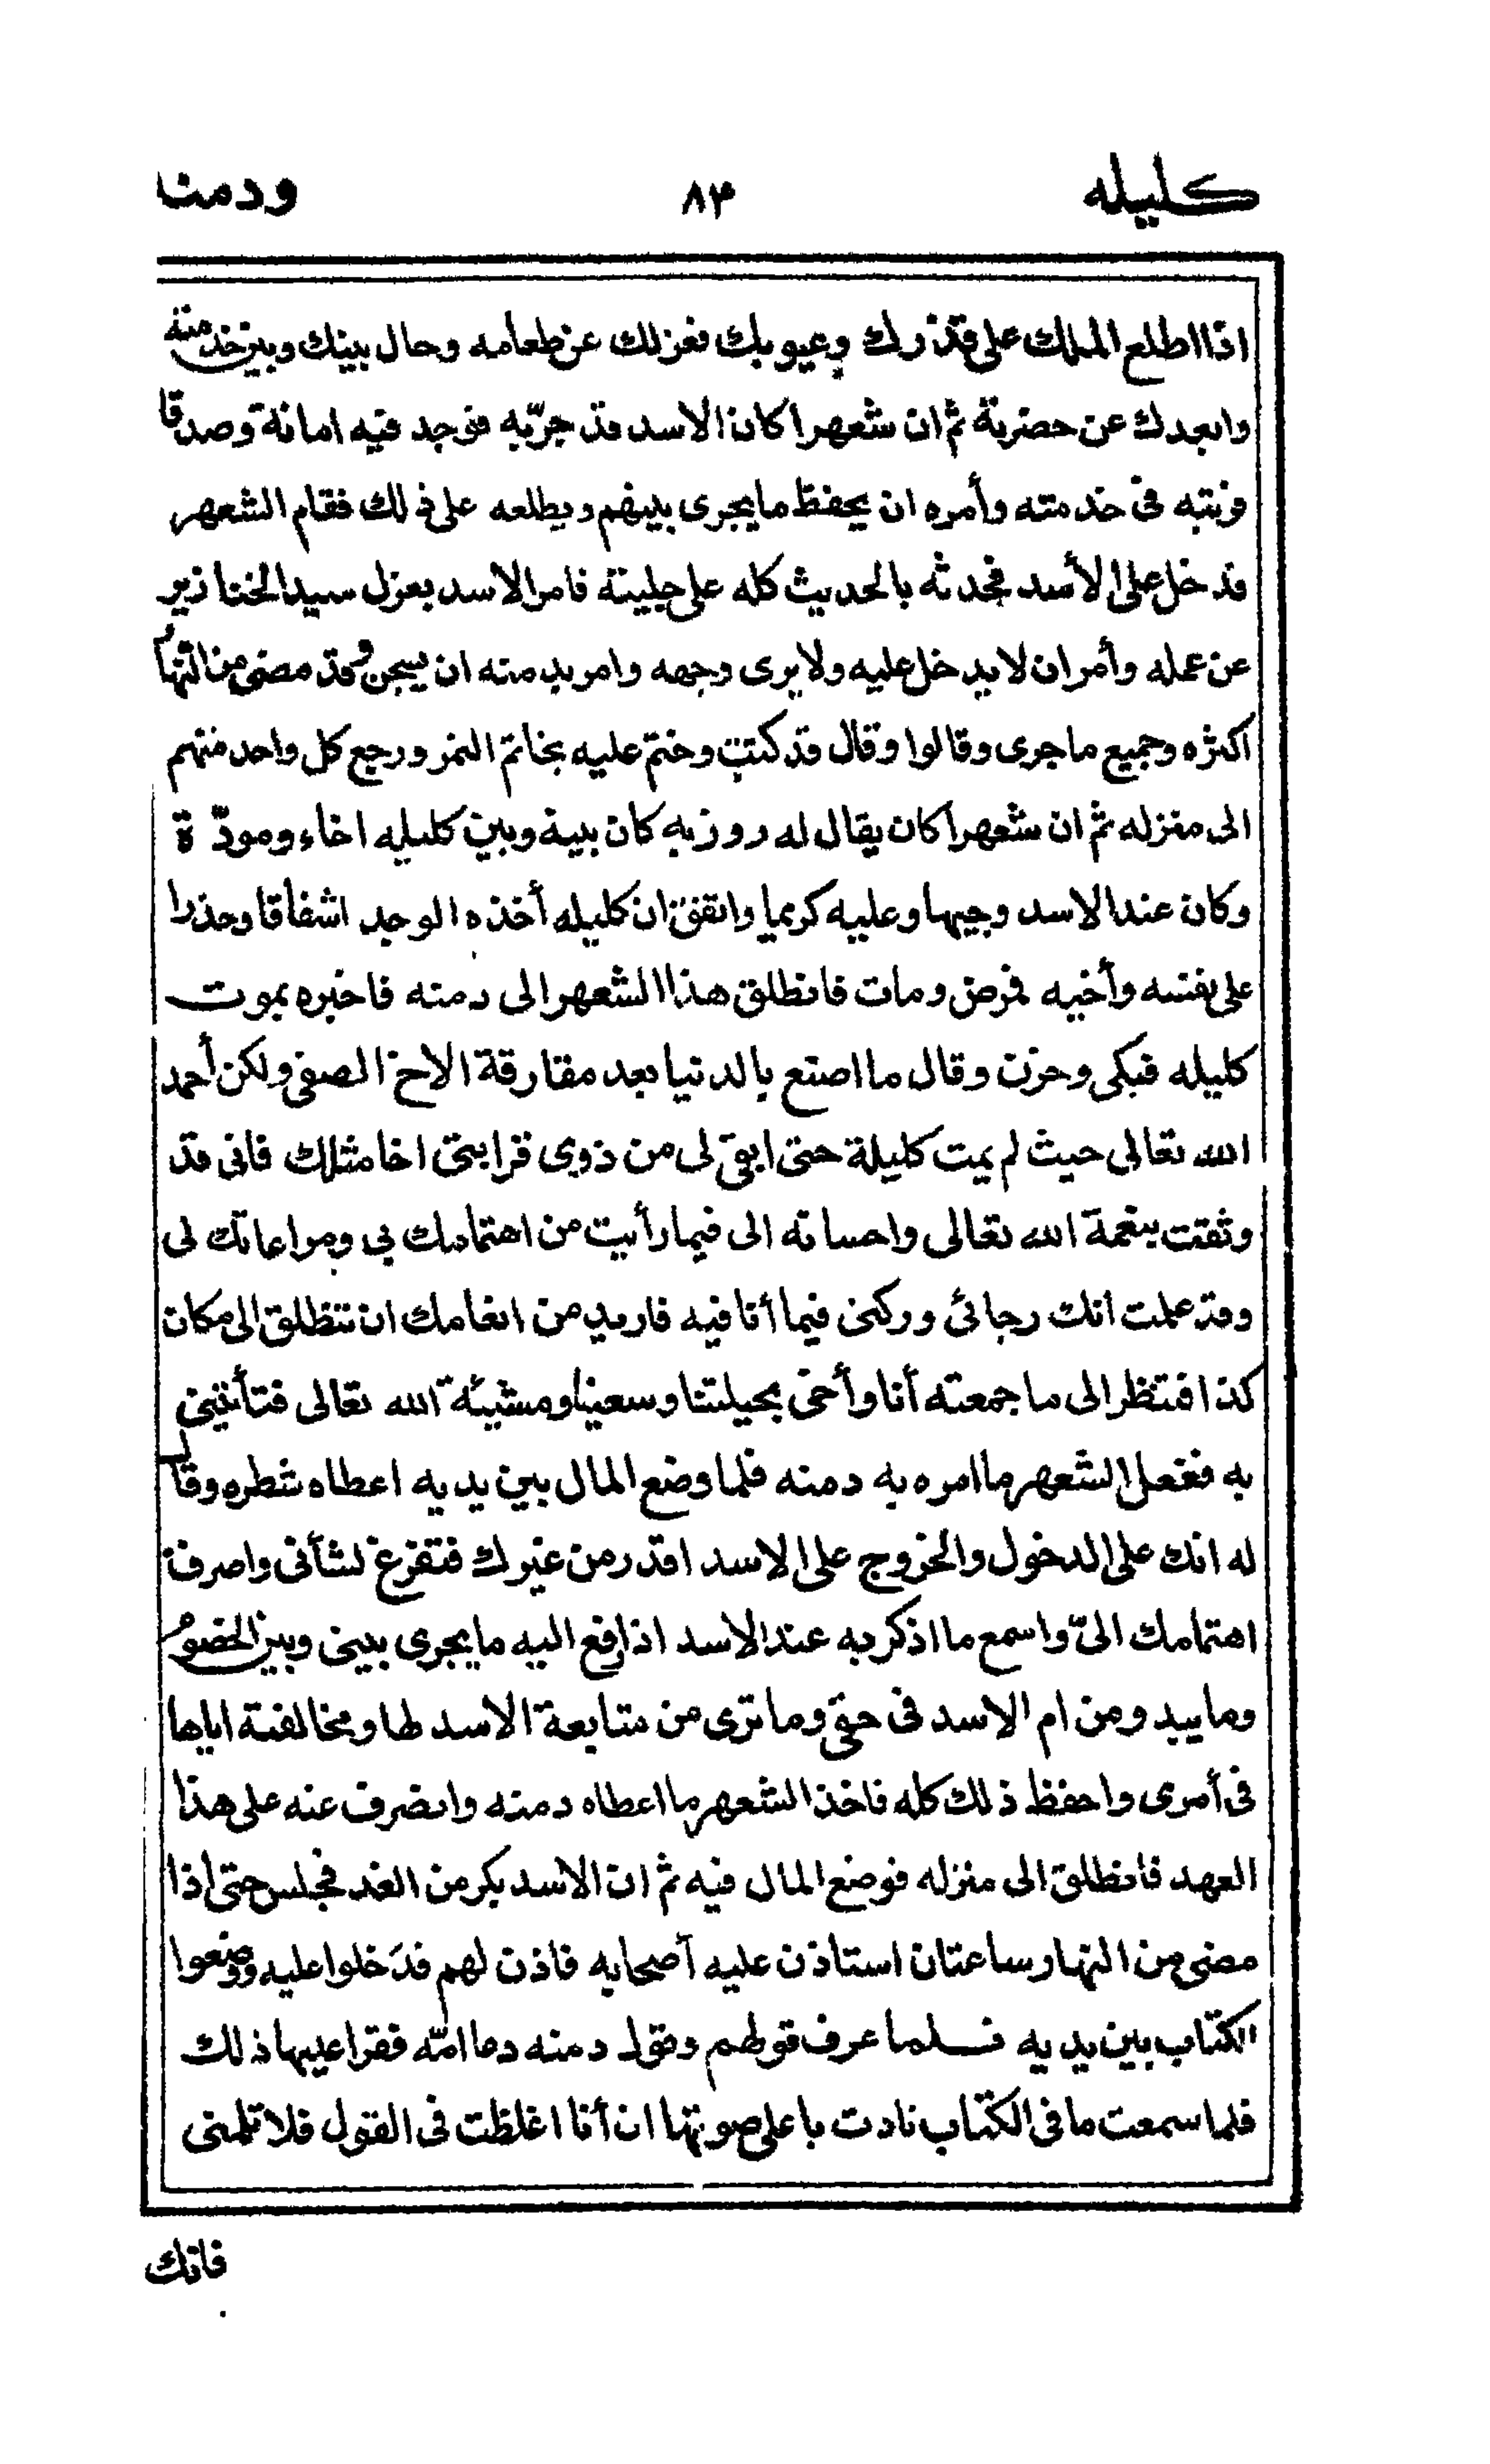 كليله ٨٣ ودمنا
اذا اطلع الملك على قذرك وعيوبك فعزلك عن طعامه وحال بينك وبين خدمته
وابعدك عن حضرتة ثم ان شعهرا كان الاسد قد جرّبه فوجد فيه امانة وصدقا
فرتبه فى خدمته وأمره ان يحفظ مايجرى بينهم ويطلعه على ذلك فقام الشعهر
فدخل على الأسد فحدثه بالحديث كله على جليتة فامر الاسد بعزل سيد الخنازير
عن عمله وأمر ان لا يدخل عليه ولا يرى وجهه وامر بدمنه ان يسجن وقد مضى من النهار
اكثره وجميع ما جرى وقالوا وقال قد كتب وختم عليه بخاتم النمر ورجع كل واحد منهم
الى منزله ثم ان شعهرا كان يقال له روزبه كان بينه وبين كليله اخاء ومودّة
وكان عند الاسد وجيها وعليه كريما واتفق ان كليله أخذه الوجد اشفاقا وحذرا
على نفسه وأخيه فمرض ومات فانطلق هذا الشعهر الى دمنه فاخبره بموت
كليله فبكى وحزن وقال ما اصنع بالدنيا بعد مفارقة الاخ الصفى ولكن أحمد
الله تعالى حيث لم يمت كليلة حتى ابقى لى من ذوى قرابتى اخا مثلك فانى قد
وثقت بنعمة الله تعالى واحسانه الى فيما رأيت من اهتمامك بى ومراعاتك لى
وقد علمت انك رجائى وركنى فيما أنا فيه فاريد من انعامك ان تنطلق الى مكان
كذا فتنظر الى ما جمعته أنا وأخى بحيلتنا وسعينا ومشيئة الله تعالى فتأتينى
به ففعل الشعهر ما امره به دمنه فلما وضع المال بين يديه اعطاه شطره وقال
له انك على الدخول والخروج على الاسد اقدر من غيرك فتفرغ لشأنى واصرف
اهتمامك الىّ واسمع ما اذكر به عند الاسد اذا رفع اليه ما يجرى بينى وبين الخصوم
وما يبدو من ام الاسد فى حقى وما ترى من متابعة الاسد لها ومخالفته اياها
فى أمرى واحفظ ذلك كله فاخذ الشعهر ما اعطاه دمنه وانصرف عنه على هذا
العهد فانطلق الى منزله فوضع المال فيه ثم ان الاسد بكر من الغد فجلس حتى اذا
مضى من النهار ساعتان استاذن عليه أصحابه فاذن لهم فدخلوا عليه ووضعوا
الكتاب بين يديه فلما عرف قولهم وقول دمنه دعا امّه فقرا عليها ذلك
فلما سمعت ما فى الكتاب نادت باعلى صوتها ان أنا اغلظت فى القول فلا تلمنى
فانك